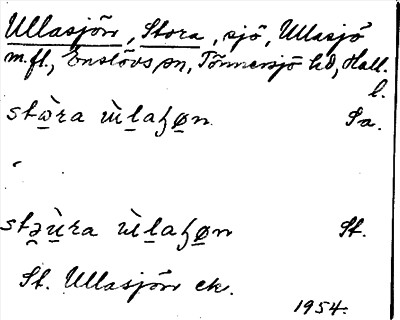 Ullasjön, Stora, sjö, Ullasjö
m.fl., Enslövs sn, Tönnersjö hd, Hall.
l.
stὼra ù̈l̠aʒø̠n Sa.
stə̯ù̠ra ù̈l̠aʒø̠n St.
St. Ullasjön ek.
1954.